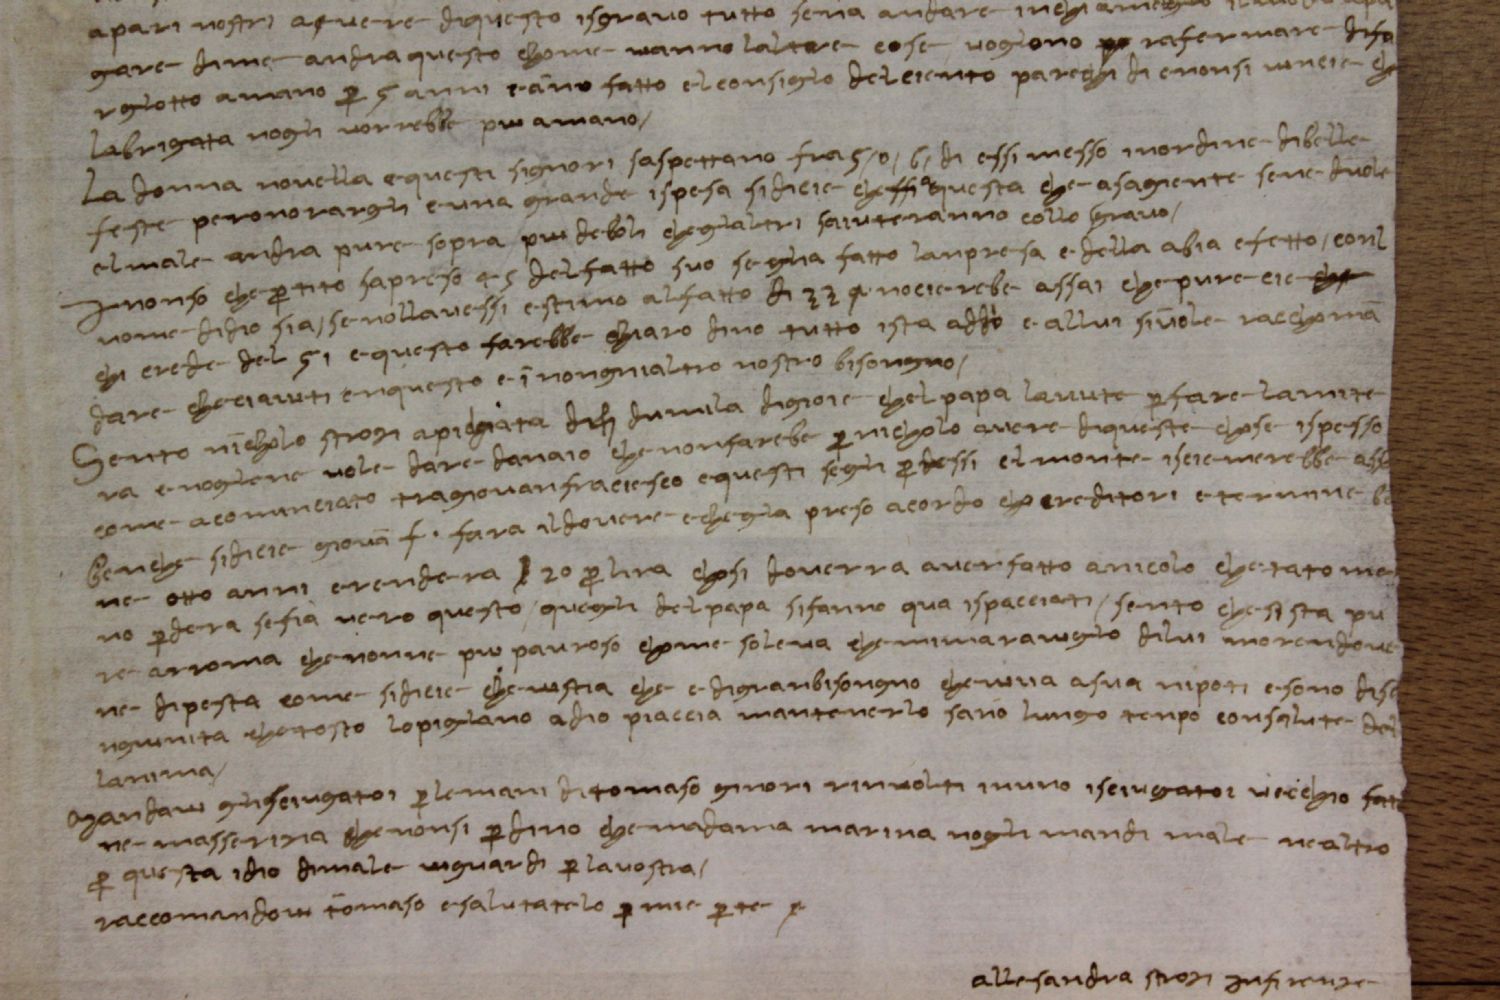 apari nostri avere diquesto isgravo tutto senza andare
gare dime andra questo chome vanno laltre cose vogliono rafermare
amano p 5 anni e ano fatto el consiglio delciento parechi di enonsi vincie che
labrigata nogli vorrebbe piu amano /
La donna novella e questi signori saspettano fra 5 / o / 6 / di essi messo inordine dibelle
feste peronorargli e una grande ispesa sidicie questa che asagiente sene duole
elmale andra pure sopra piu deboli cheglialtri saiuteranno collo sgravo /
Inonso che ptito sapreso 4 5 delfatto suo segha fatto lanpresa e della abia efetto / conl
nome didio sia / senollavessi estimo alfatto di 32 nocierebe assai che pure cie
chi crede del 51 e questo farebbe chiaro dino tutto ista addio e allui sivole rachoma
dare checiaiuti enquesto e i nongnialtro nostro bisongno /
Sento nicholo strozi di duvila digioie chelpapa lavute p fare lamite
ra e nogliene vole dare danaio che nonfarebe p nicholo avere diqueste chose ispesso
come acominciato tragiovanfraciesco e questi segli pdessi elmonte isciemerebbe
Benche sidicie giova f. fara ildovere e chegha preso acordo cho creditori e termine
ne otto anni e rendera 20 p lira chosi doverra averfatto anicolo che tato me
no pdera sefia vero questo / quegli delpapa sifanno qua ispacciati / sento chesista pu
re arroma che nonne piu pauroso chome soleva chemimaraviglio dilui morendove
ne dipesta come sidicie che vistia che e digranbisongno cheviva asua nipoti e sono
chetosto lopigliano adio piaccia mantenerlo sano lungo tenpo consalute del
lanima /
Mandavi gli sciugatoi p lemani di tomaso ginori rinvolti inuno isciugatoi vechio
ne masserizia che nonsi pdino che madama marina nogli mandi male ne altro
p questa idio dimale viguardi p lavostra /
raccomandovi tomaso e salutatelo p mie pte
allesandra strozi infirenze